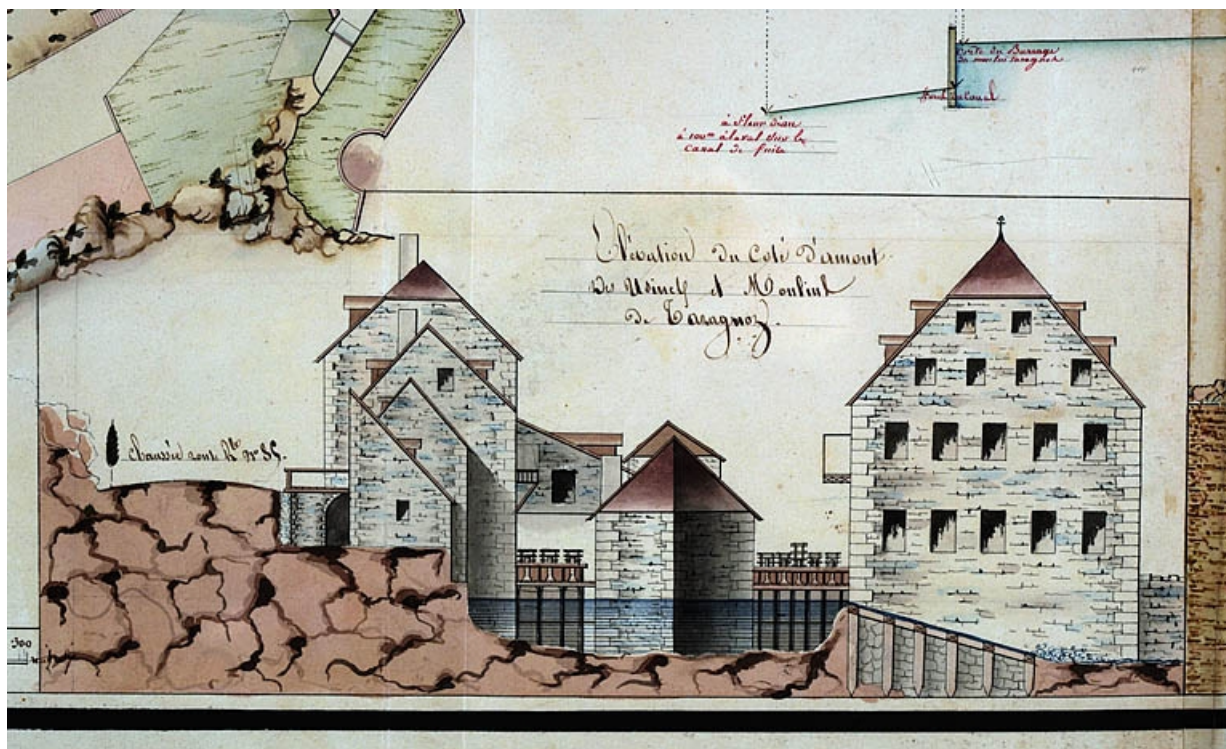 Porte du Barrage
du moulin taragnoz
fond du Canal
à fleur d'eau
à 100m à laval sur le
canal de fuite
Elévation du Coté d'amont
Des Usines et Moulins
de Taragnoz.
Chaussée route Rle n° 85.
300